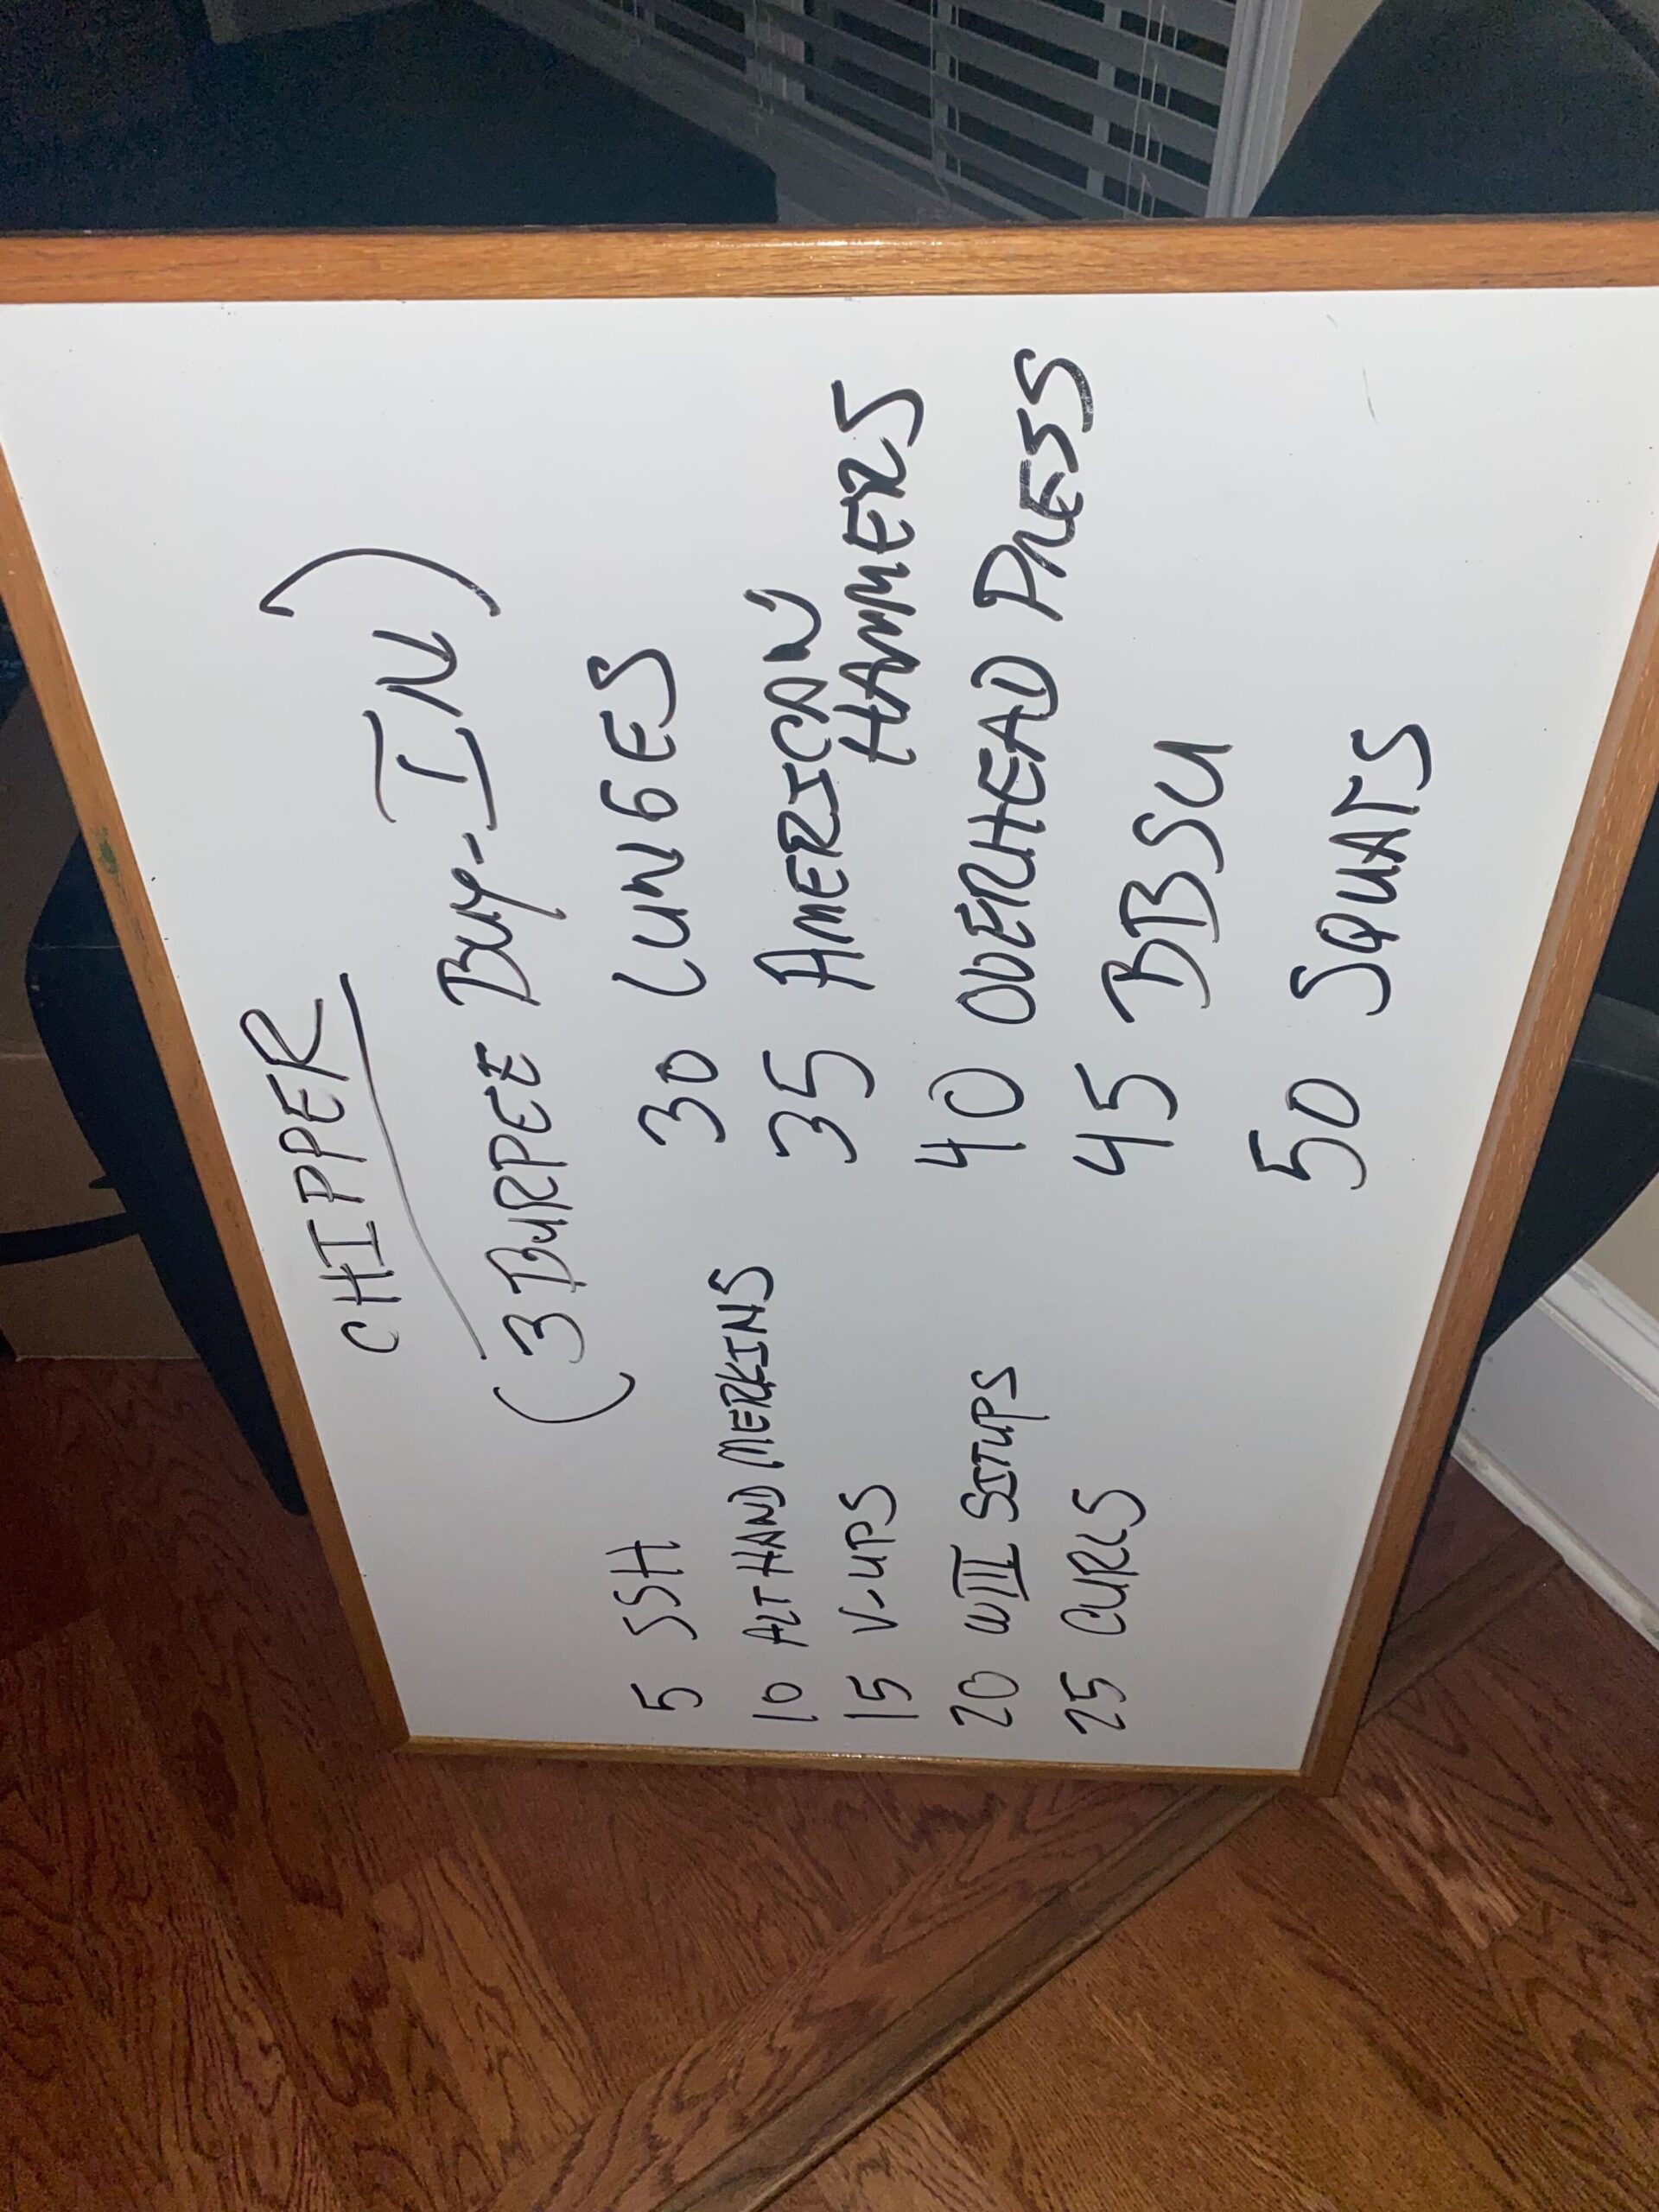 CHIPPER
(3 BURPEE BUY-IN)
5 SSH
10 ALT HAND MERKINS
15 V-UPS
20 WIII SITUPS
25 CURLS
30 LUNGES
35 AMERICAN
HAMMERS
40 OVERHEAD PRESS
45 BBSU
50 SQUATS